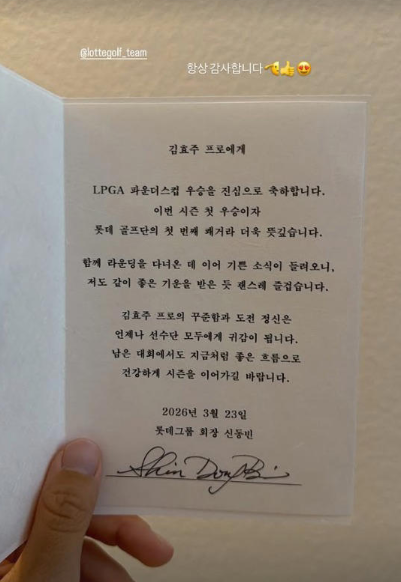 @lottegolf_team
항상 감사합니다🫡👍😍
김효주 프로에게
LPGA 파운더스컵 우승을 진심으로 축하합니다.
이번 시즌 첫 우승이자
롯데 골프단의 첫 번째 쾌거라 더욱 뜻깊습니다.
함께 라운딩을 다녀온 데 이어 기쁜 소식이 들려오니,
저도 같이 좋은 기운을 받은 듯 괜스레 즐겁습니다.
김효주 프로의 꾸준함과 도전 정신은
언제나 선수단 모두에게 귀감이 됩니다.
남은 대회에서도 지금처럼 좋은 흐름으로
건강하게 시즌을 이어가길 바랍니다.
2026년 3월 23일
롯데그룹 회장 신동빈
Shin Dong Bin